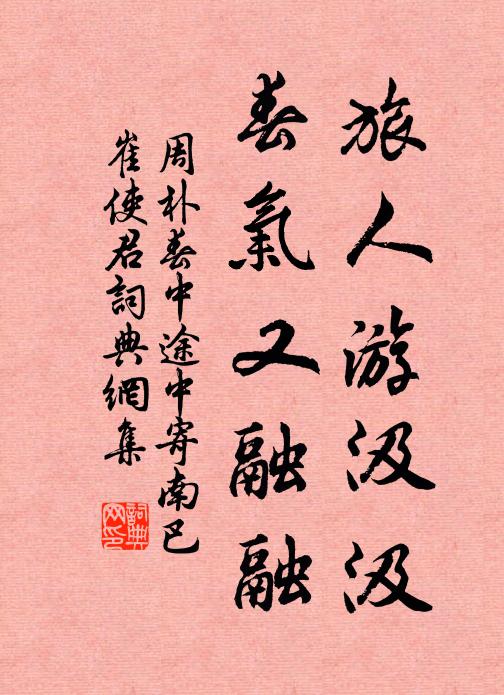 旅人游汲汲
春氣又融融
周朴春中途中寄南巴
崔使君詞典網集
詞典網印